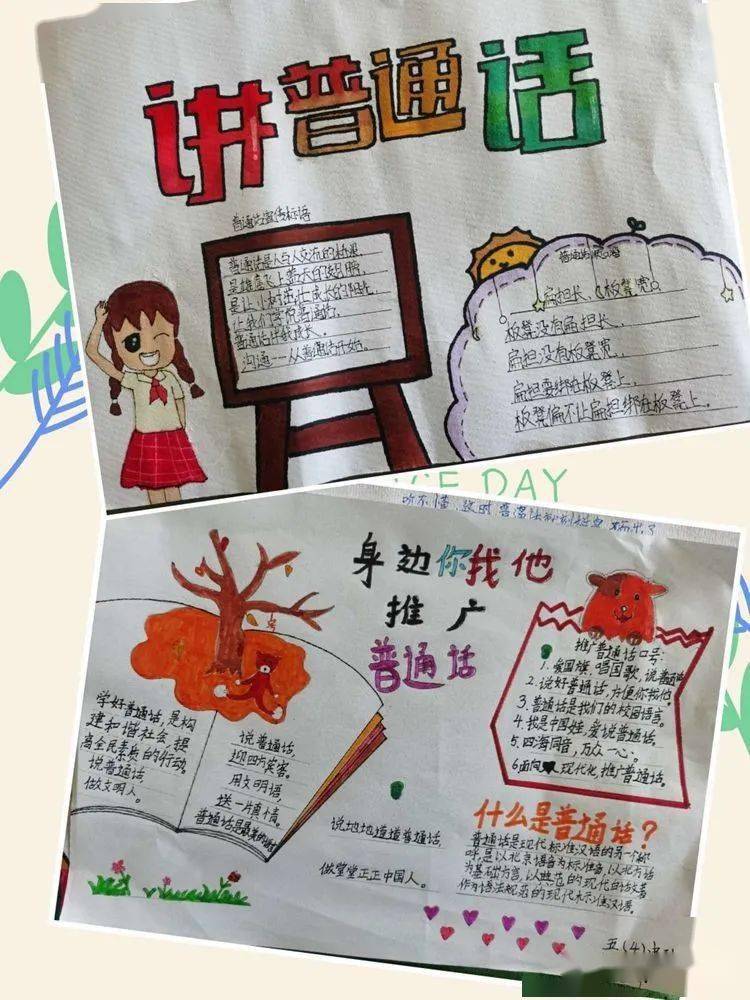 讲普通话
普通话宣传标语
普通话是人与人交流的桥梁,
是雄鹰飞上蓝天的翅膀,
是让小树茁壮成长的阳光,
让我们享受普通话,
普通话伴我成长,
沟通——从普通话开始。
普通话绕口令
扁担长,板凳宽。
板凳没有扁担长,
扁担没有板凳宽,
扁担要绑在板凳上,
板凳偏不让扁担绑在板凳上。
CE DAY
听不懂,这时普通话
身边你找他
推广
普通话
学好普通话,是构
建和谐社会、提
高全民素质的行动。
说普通话,
做文明人。
说普通话,
迎四方宾客。
用文明语,
送一片真情。
普通话是最美的
说地地道道普通话,
做堂堂正正中国人。
推广普通话口号:
1.爱国旗,唱国歌,说普通话
2.说好普通话,方便你我他
3.普通话是我们的校园语言。
4.我是中国娃,爱说普通话。
5.四海同音,万众一心。
6面向现代化,推广普通话。
什么是普通话?
普通话是现代标准汉语的另一个称
呼,是以北京语音为标准音,以北方话
为基础方言,以典范的现代白话文著
作为语法规范的现代标准汉语。
五(4)